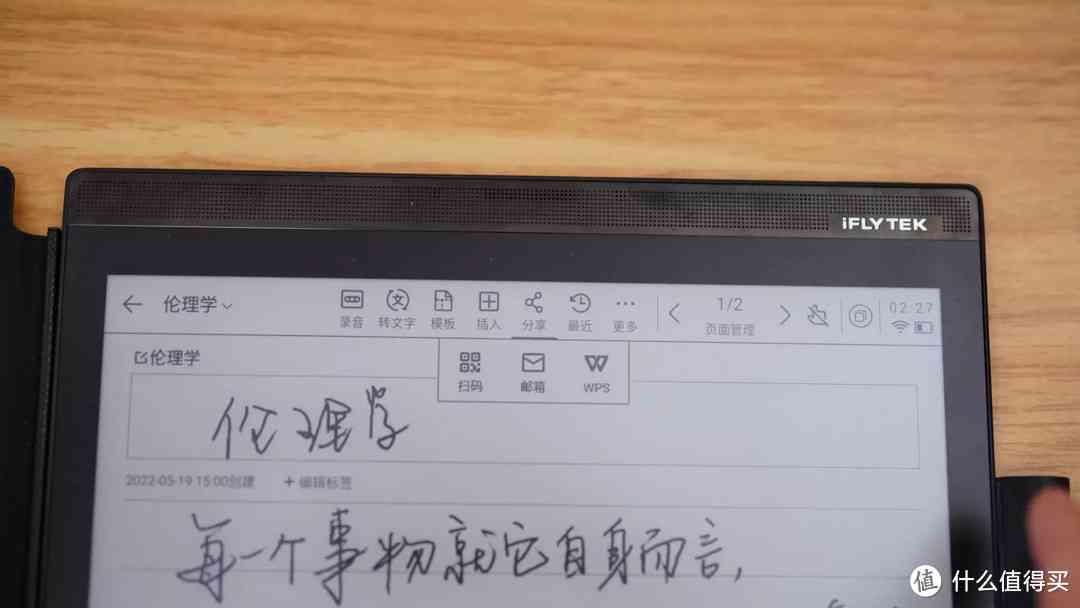 iFLYTEK
伦理学
录音 转文字 模板 插入 分享 最近 更多 1/2 页面管理 02:27
伦理学
扫码 邮箱 WPS
伦理学
2022-05-19 15:00创建 + 编辑标签
每一个事物就它自身而言,
值 什么值得买